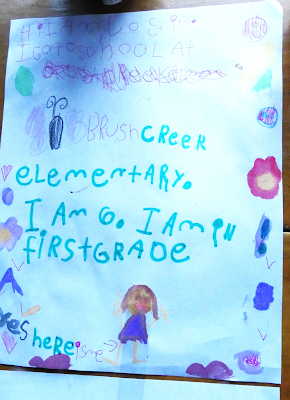 Hi I Am
I go to school At
BRUSH CREEK
eLementARy.
I Am 6. I Am in
fiRStGRADE
yes here is me